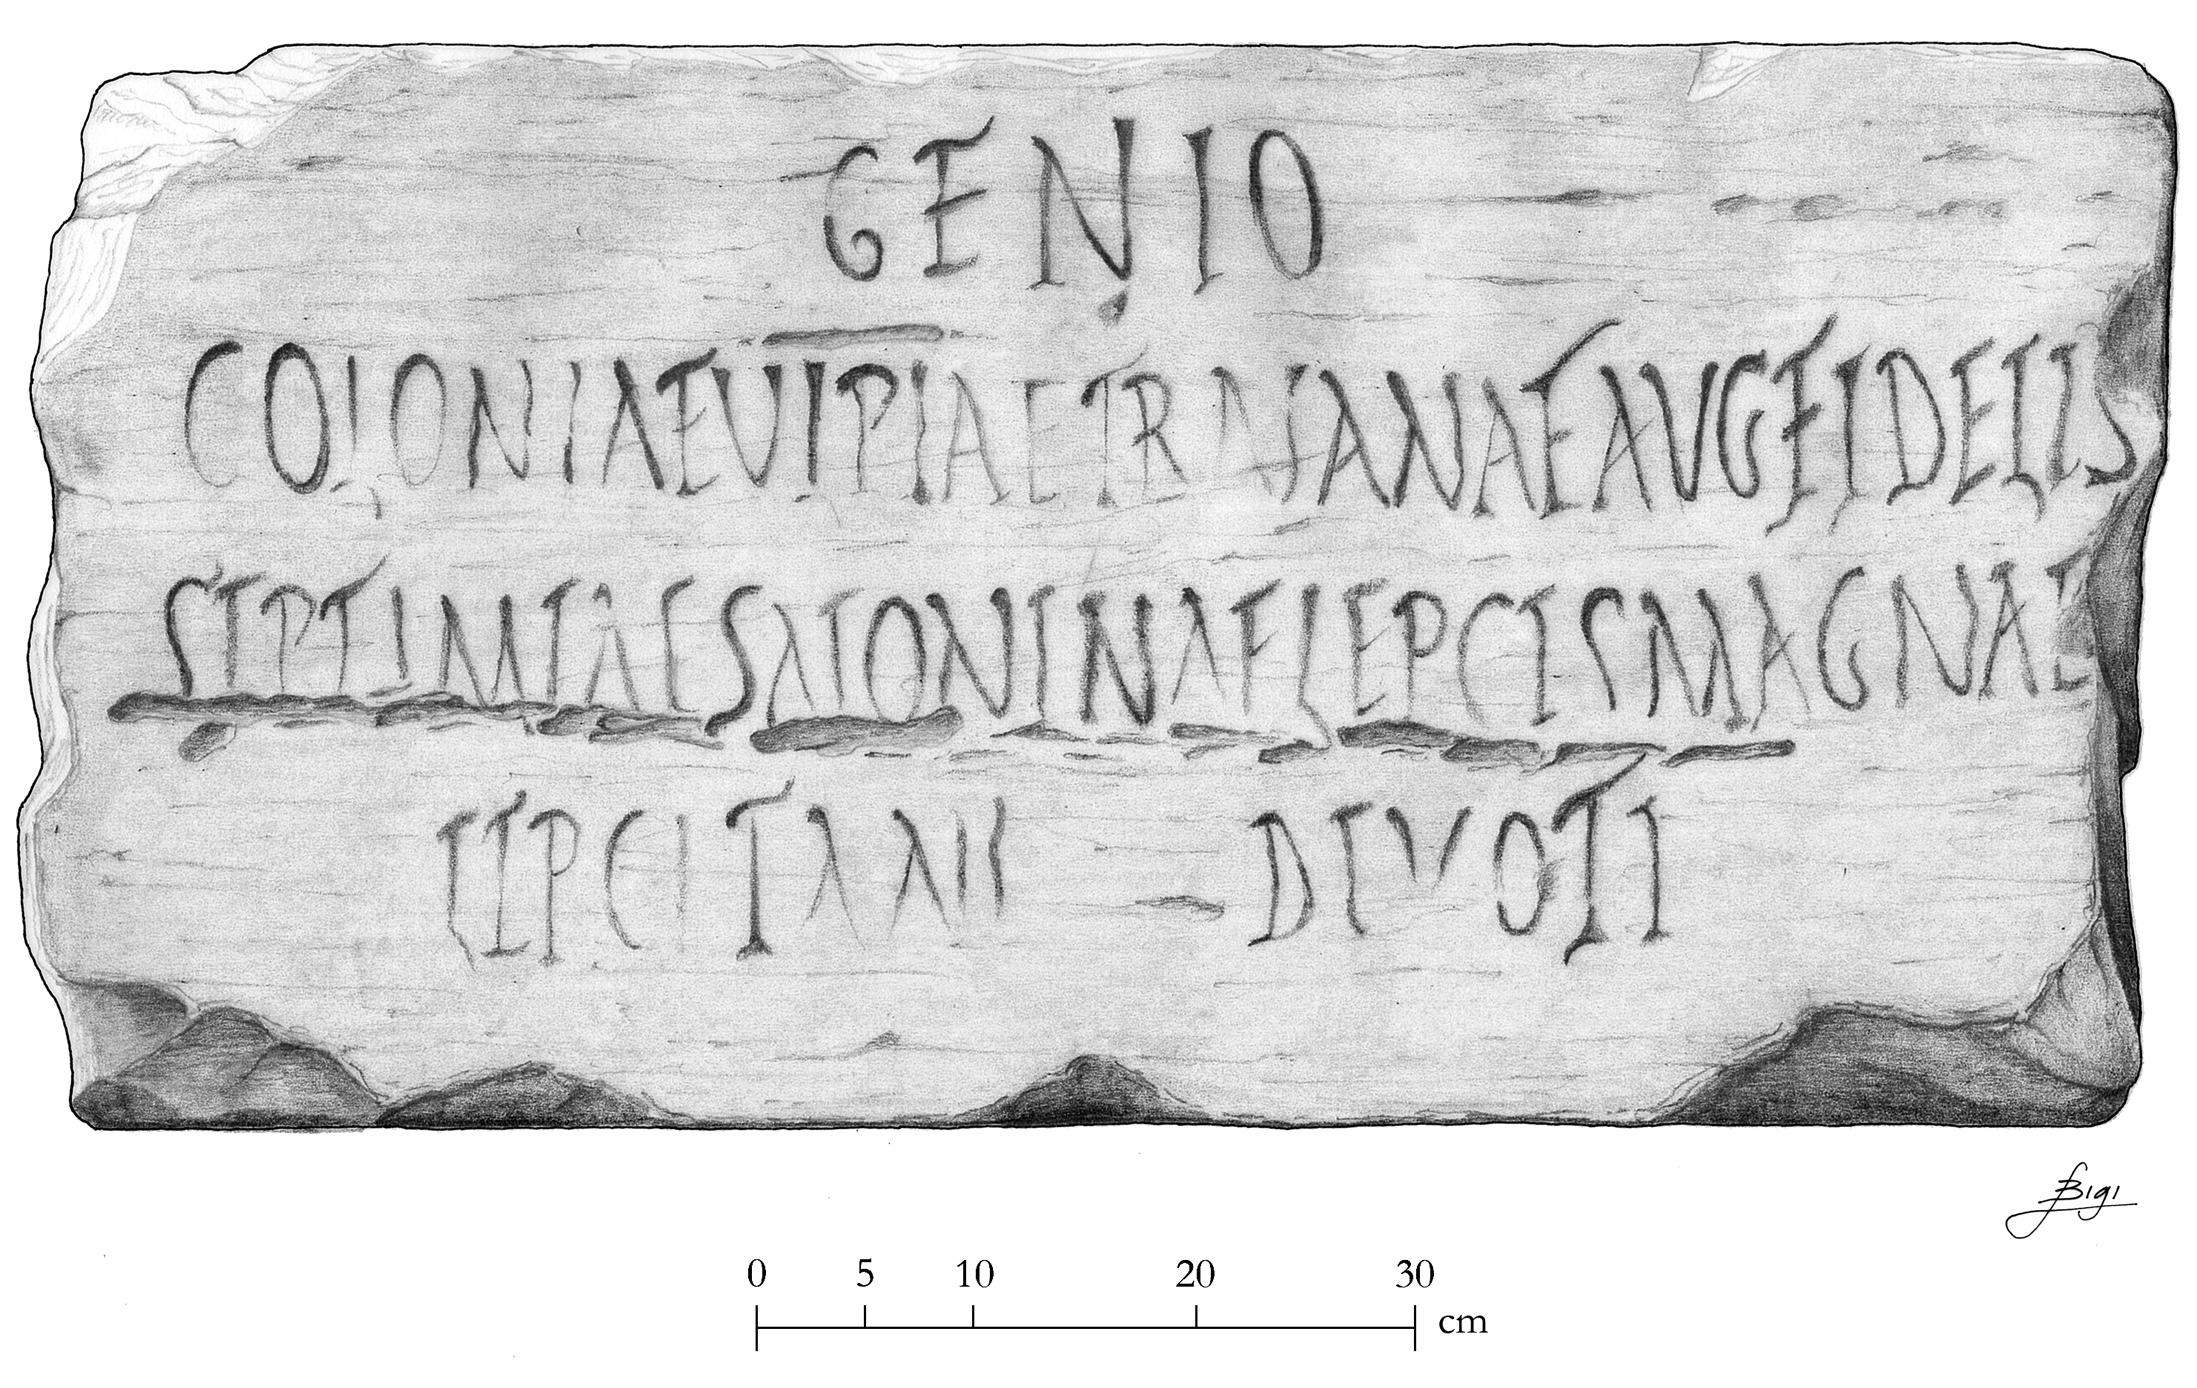 GENIO
COLONIAEVLPIAETRAIANAEAVGFIDELIS
SEPTIMIAESALONINAELEPCISMAGNAE
LEPCITANI DEVOTI
Bigi
0 5 10 20 30
cm